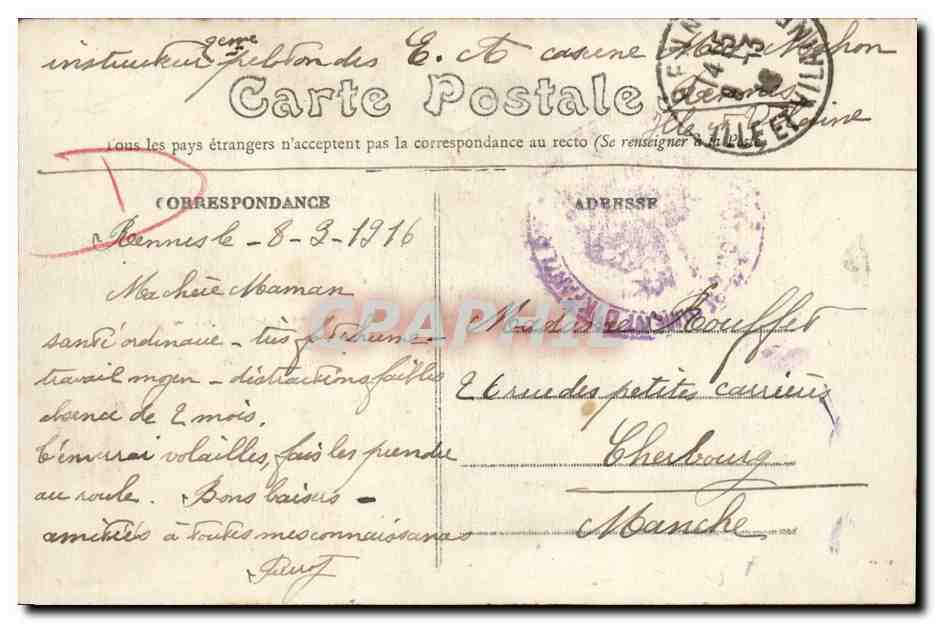 instructeur peloton des E. A caserne Mac Mahon
Rennes
Ille et Vilaine
Carte Postale
Tous les pays étrangers n'acceptent pas la correspondance au recto (Se renseigner à la Poste)
CORRESPONDANCE
ADRESSE
Rennes le - 8-3-1916
Ma chère Maman
santé ordinaire - très
travail moyen - distractions faibles
de 2 mois.
t'enverrai volailles, fais les prendre
au roule. Bons baisers -
amitiés à toutes mes connaissances
Madame Rouffet
26 rue des petites carrières
Cherbourg
Manche
ILLE ET VILAINE
CPAPHIL